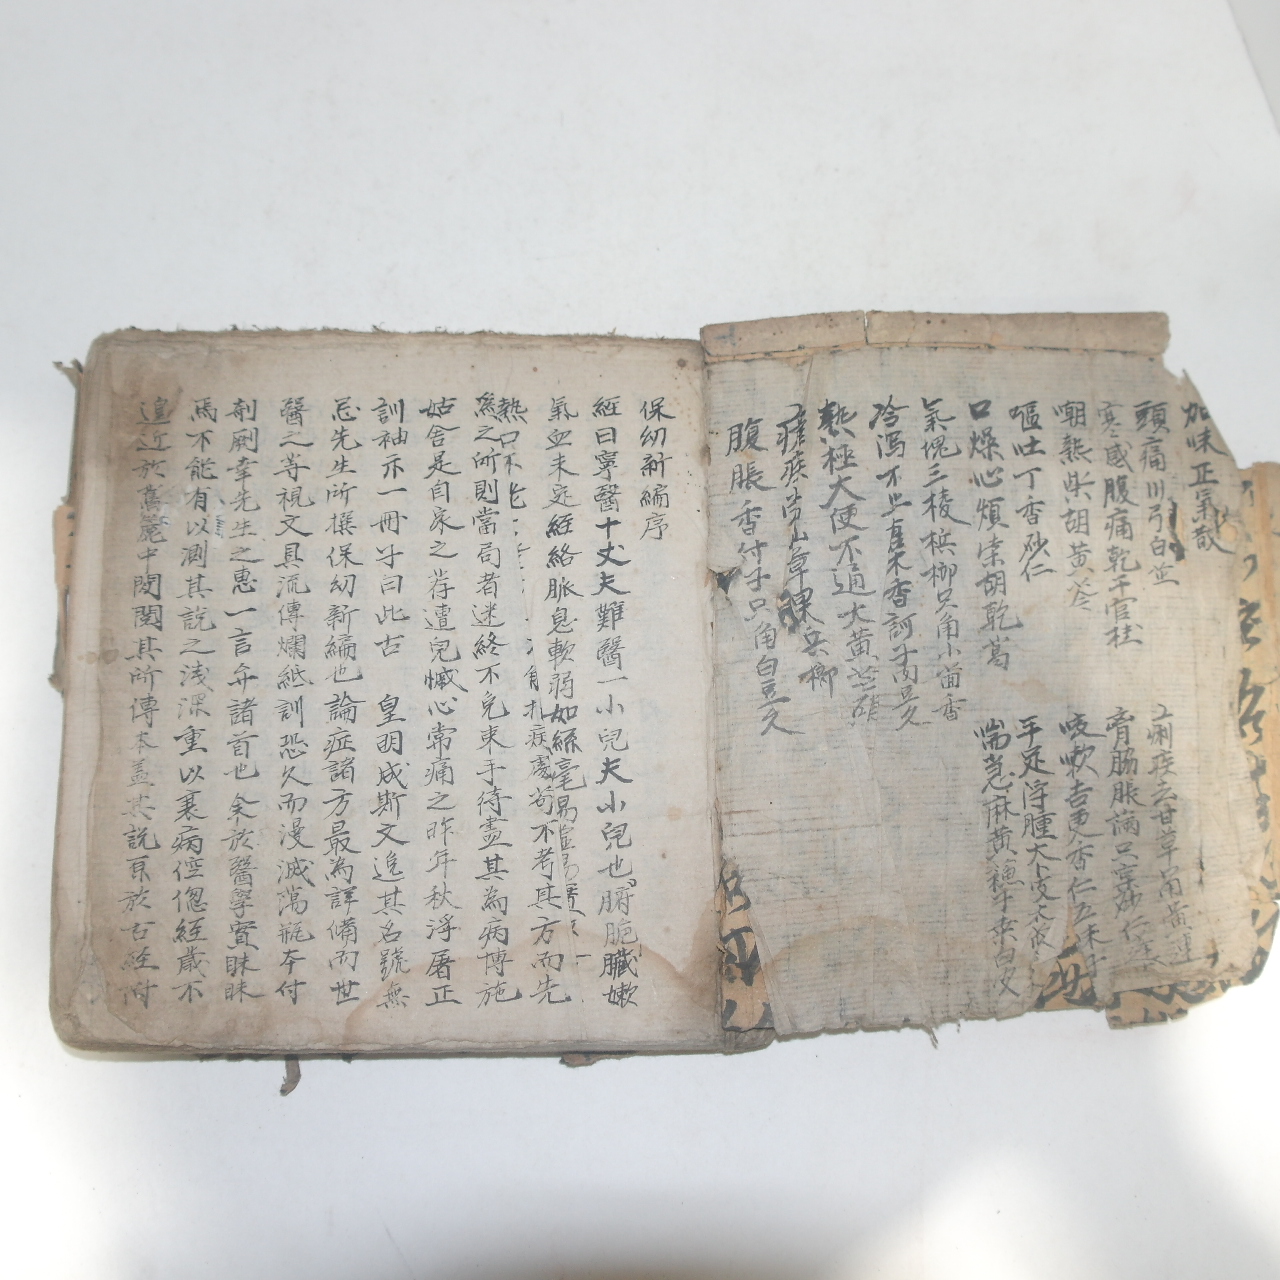 加味正氣散
頭痛川芎白芷
寒感腹痛乾干官桂
嘲熱柴胡黃芩
嘔吐丁香砂仁
口燥心煩柴胡乾葛
氣塊三稜檳榔只角小茴香
冷瀉不止直木香訶子肉豆久
熱極大便不通大黃芒硝
腹脹香付子只角白豆久
痢疾去甘草 黃連
脅肋脹滿只 砂仁
咳軟吉更杏仁五味子
手足浮腫大卜皮
喘急麻黃穗子桑白皮
保幼新編序
經曰寧醫十丈夫難醫一小兒夫小兒也腑脆臟嫰
氣血未定經絡脈息軟弱如絲毫易
熱口不
疾處苟不考其方而先
為之所則當局者迷終不免束手待盡其為病博施
姑舍是自家之荐遭兒慽心常痛之昨年秋浮屠正
訓袖示一冊子曰此古 皇明成斯文追其名號無
忌先生所撰保幼新編也論症諸方最為詳備而世
醫之等視文具流傳爛紙訓恐久而漫滅蕩瓶夲付
剞劂幸先生之惠一言弁諸首也余於醫學實昧昧
焉不能有以測其說之浅深重以衰病倥傯經歲不
遑近於舊麓中閱閱其所傳本盖其說原於古經附